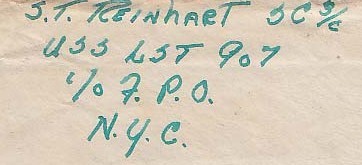 S.T. REINHART SC 3/C
USS LST 907
℅ F.P.O.
N.Y.C.